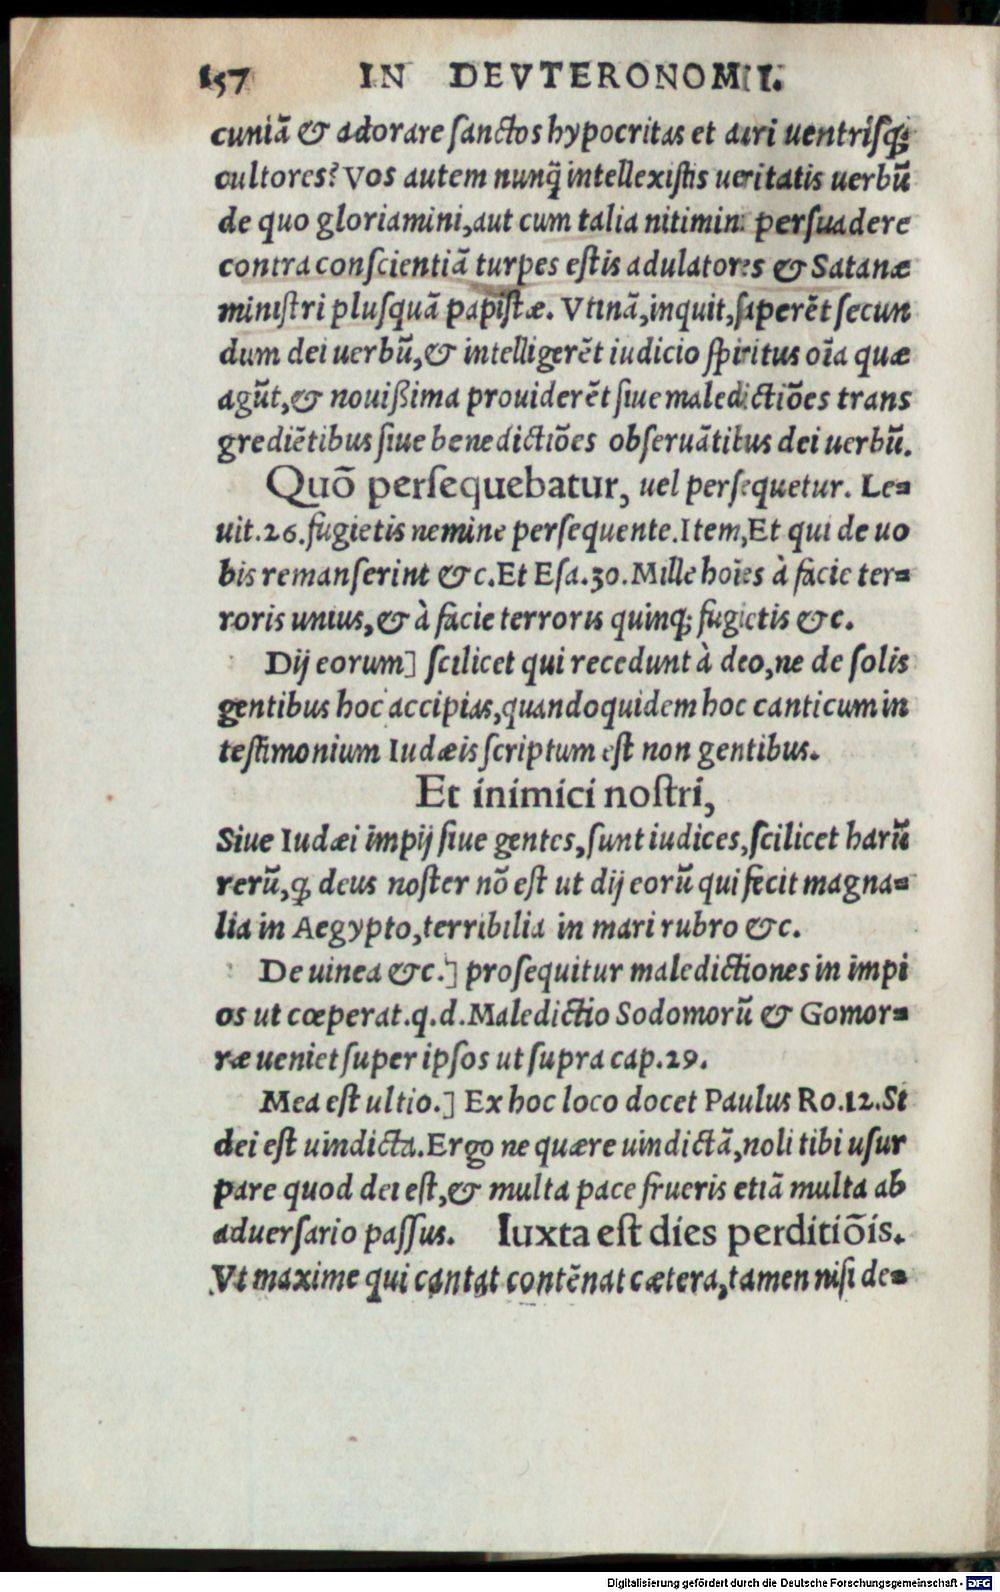 157 IN DEVTERONOMII.
cuniā & adorare sanctos hypocritas et auri uentrisq;
cultores? Vos autem nunq̃ intellexistis ueritatis uerbū
de quo gloriamini, aut cum talia nitimini persuadere
contra conscientiā turpes estis adulatores & Satanæ
ministri plusquā papistæ. Vtinā, inquit, saperēt secun
dum dei uerbū, & intelligerēt iudicio spiritus oīa quæ
agūt, & nouißima prouiderēt siue maledictiōes trans
grediētibus siue benedictiōes obseruātibus dei uerbū.
Quō persequebatur, uel persequetur. Le=
uit.26. fugietis nemine persequente. Item, Et qui de uo
bis remanserint &c. Et Esa.30. Mille hoīes à facie ter=
roris unius, & à facie terroris quinq; fugietis &c.
Dij eorum] scilicet qui recedunt à deo, ne de solis
gentibus hoc accipias, quandoquidem hoc canticum in
testimonium Iudæis scriptum est non gentibus.
Et inimici nostri,
Siue Iudæi impij siue gentes, sunt iudices, scilicet harū
rerū, ꝙ deus noster nō est ut dij eorū qui fecit magna=
lia in Aegypto, terribilia in mari rubro &c.
De uinea &c.] prosequitur maledictiones in impi
os ut cœperat. q.d. Maledictio Sodomorū & Gomor=
ræ ueniet super ipsos ut supra cap.29.
Mea est ultio.] Ex hoc loco docet Paulus Ro.12. Si
dei est uindicta. Ergo ne quære uindictā, noli tibi usur
pare quod dei est, & multa pace frueris etiā multa ab
aduersario passus. Iuxta est dies perditiōis.
Vt maxime qui cantat contēnat cætera, tamen nisi de=
Digitalisierung gefördert durch die Deutsche Forschungsgemeinschaft - DFG